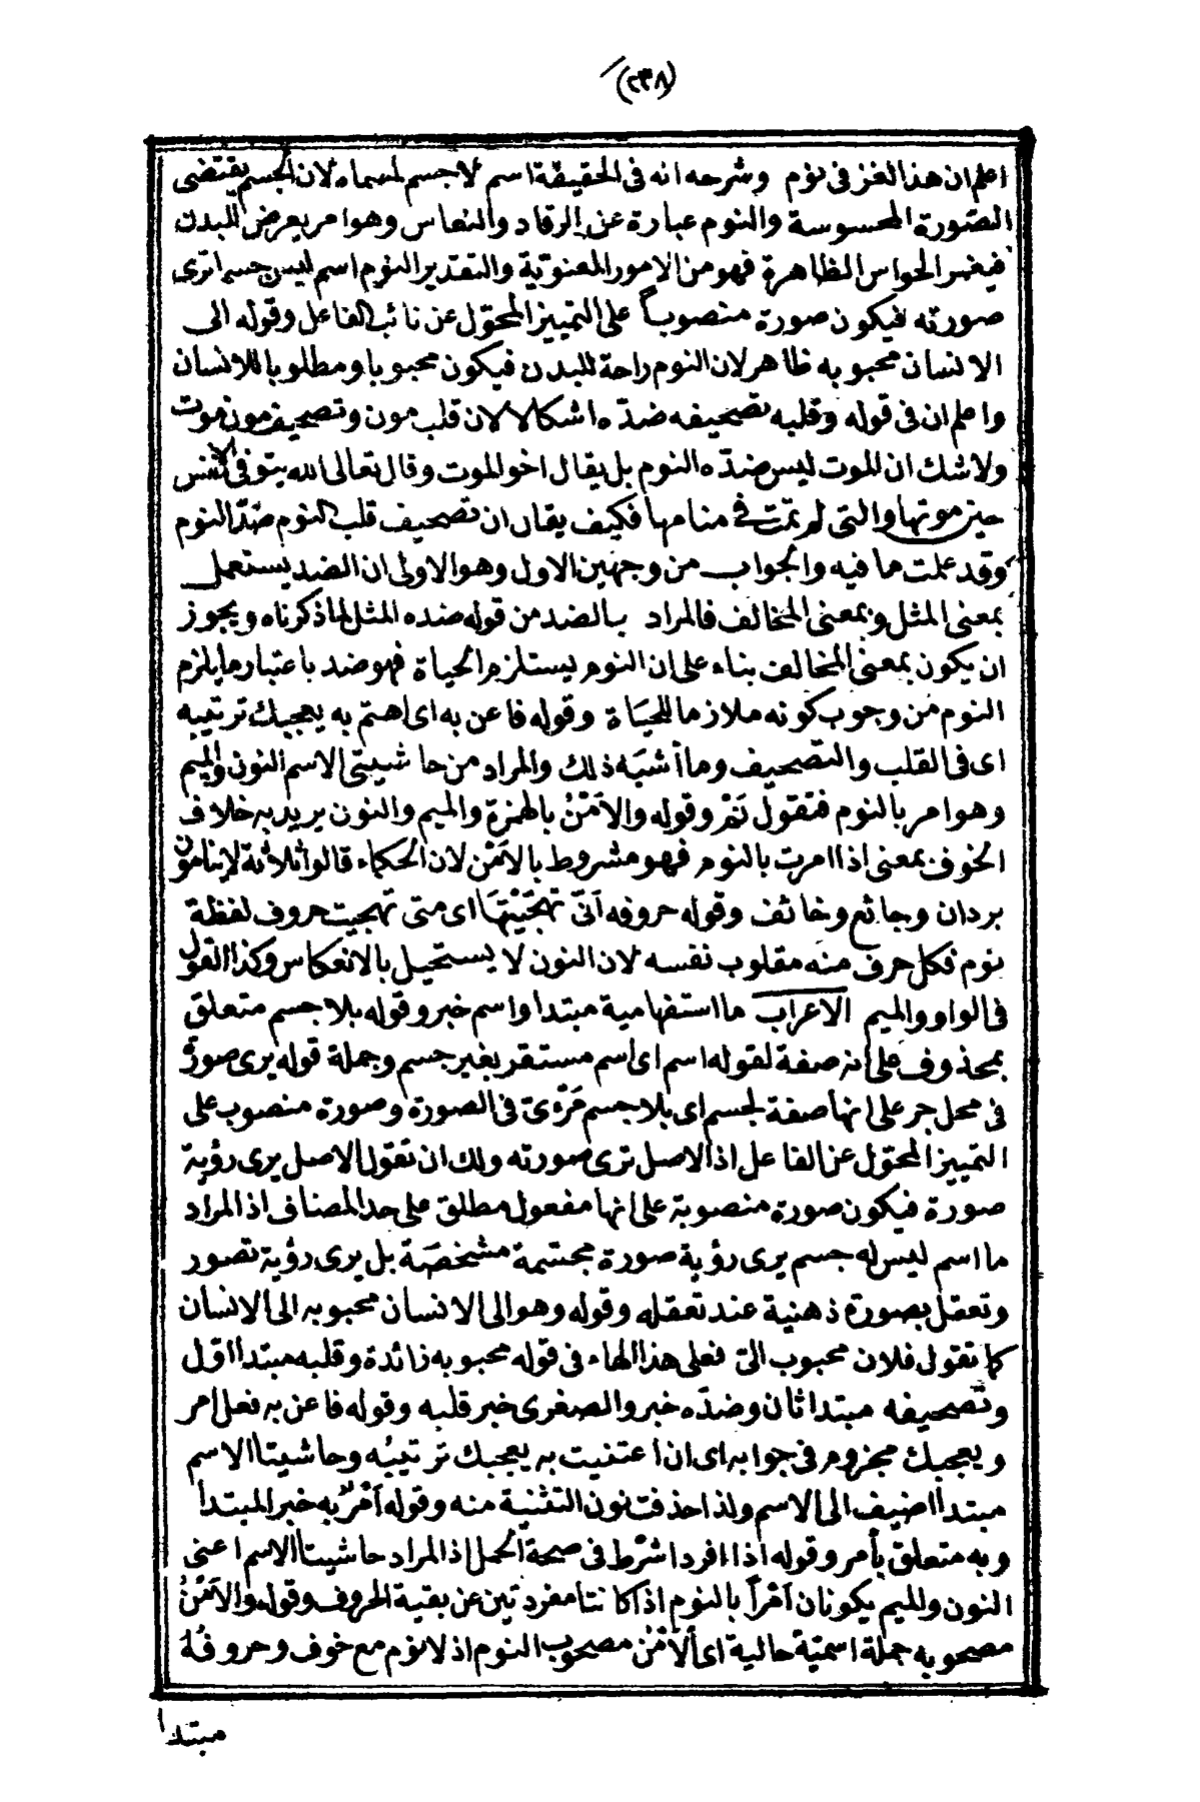 (٢٣٨)
اعلم ان هذا الغز فى نوم وشرحه انه فى الحقيقة اسم لا جسم لمسماه لان الجسم يقتضى
الصورة المحسوسة والنوم عبارة عن الرقاد والنعاس وهو امر يعرض للبدن
فيغمر الحواس الظاهرة فهو من الامور المعنوية والتقدير النوم اسم ليس جسم اترى
صورته فيكون صورة منصوباً على التمييز المحوّل عن نائب الفاعل وقوله الى
الانسان محبوبه ظاهر لان النوم راحة للبدن فيكون محبوبا ومطلوبا للانسان
واعلم ان فى قوله وقلبه تصحيفه ضدّه اشكالا لان قلب مون وتصحيف مون موت
ولا شك ان الموت ليس ضدّه النوم بل يقال اخو الموت وقال تعالى الله يتوفى الانفس
حين موتها والتى لم تمت فى منامها فكيف يقال ان تصحيف قلب النوم ضدّ النوم
وقد علمت ما فيه والجواب من وجهين الاول وهو الاولى ان الضد يستعمل
بمعنى المثل وبمعنى المخالف فالمراد بالضد من قوله ضده المثل لما ذكرناه ويجوز
ان يكون بمعنى المخالف بناء على ان النوم يستلزم الحياة فهو ضد باعتبار ما يلزم
النوم من وجوب كونه ملازما للحيَاة وقوله فاعن به اى اهتم به يعجبك ترتيبه
اى فى القلب والتصحيف وما أشبَه ذلك والمراد من حاشيتى الاسم النون والميم
وهو امر بالنوم فتقول نَمْ وقوله والاَمْنُ بالهمزة والميم والنون يريد به خلاف
الخوف بمعنى اذا امرت بالنوم فهو مشروط بالاَمْن لان الحكماء قالوا ثلاثة لا ينامون
بردان وجائع وخائف وقوله حروفه اَنّى تهَجّيْتهَا اى متى تهجيت حروف لفظة
نوم فكل حرف منه مقلوب نفسه لان النون لا يستحيل بالانعكاس وكذا القول
فى الواو والميم الاعراب ما استفهامية مبتدا واسم خبر وقوله بلا جسم متعلق
بمحذوف على انه صفة لقوله اسم اى اسم مستقر بغير جسم وجملة قوله يرى صورةً
فى محل جر على انها صفة لجسم اى بلا جسم مَرْءىّ فى الصورة وصورة منصوب على
التمييز المحوّل عن الفاعل اذ الاصل ترى صورته ولك ان تقول الاصل يرى رؤية
صورة فيكون صورة منصوبة على انها مفعول مطلق على حد المضاف اذ المراد
ما اسم ليس له جسم يرى رؤية صورة مجسّمة مشخصَة بل يرى رؤية تصور
وتعقل بصورة ذهنية عند تعقله وقوله وهو الى الانسان محبوبه الى الانسان
كما تقول فلان محبوب الىّ فعلى هذا الهاء فى قوله محبوبه زائدة وقلبه مبتدا اوّل
وتصحيفه مبتدا ثان وضدّه خبر والصغرى خبر قلبه وقوله فاعن به فعل امر
ويعجبك مجزوم فى جوابه اى ان اعتنيت به يعجبك ترتيبُه وحاشيتا الاسم
مبتدأ اضيف الى الاسم ولذا حذفت نون التثنية منه وقوله اَمْرٌ به خبر المبتدأ
وبه متعلق بأمر وقوله اذا افردا شرط فى صحة الحمل اذ المراد حاشيتا الاسم اعنى
النون والميم يكونان اَمْراً بالنوم اذا كانتا مفردتين عن بقية الحروف وقوله والاَمْنُ
مصحوبه جملة اسميّة حالية اى ألاَمْنُ مصحوب النوم اذ لا نوم مع خوف وحروفُهُ
مبتدا